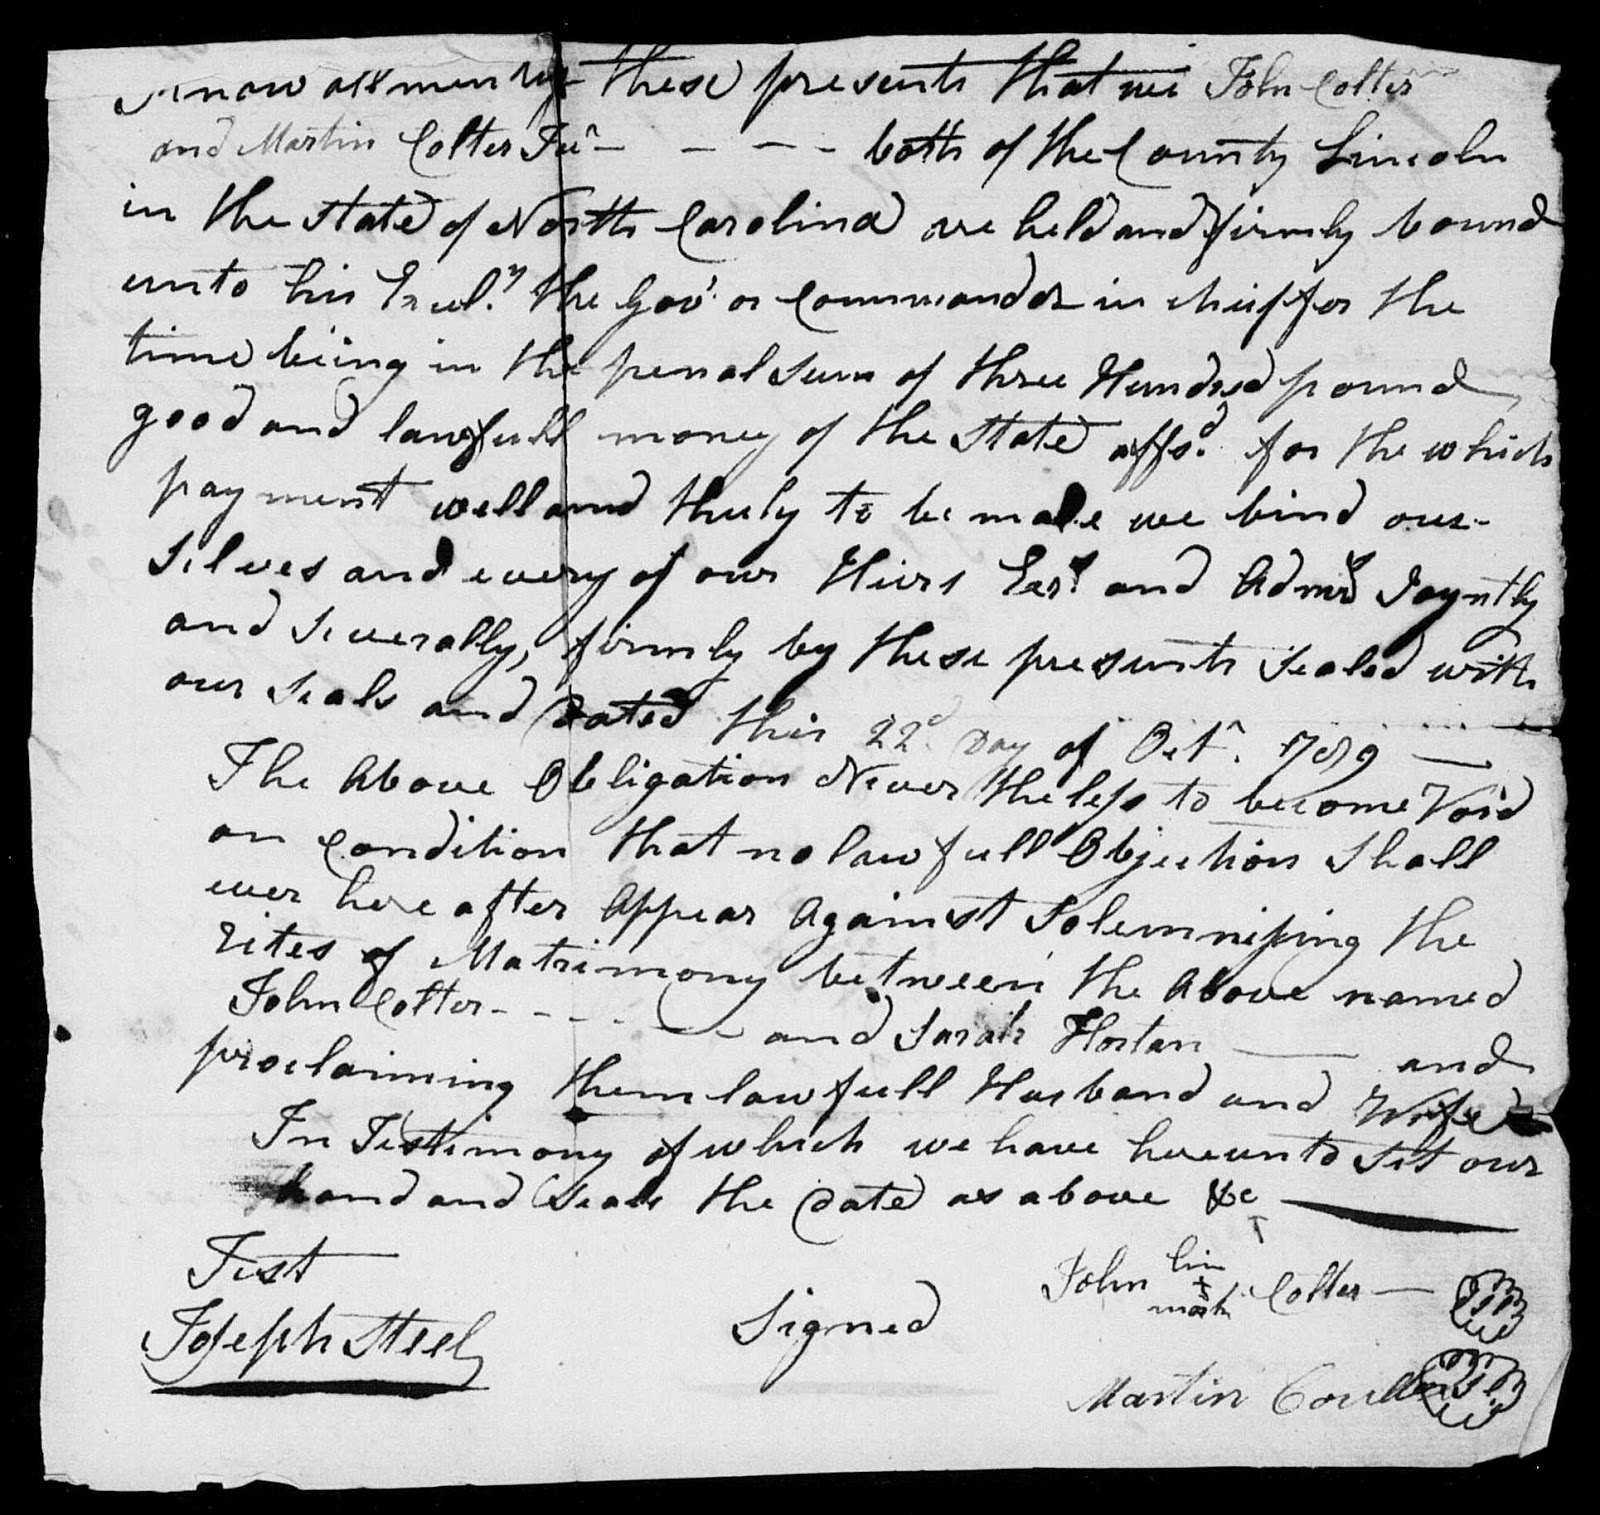 Know all men by these presents that we John Colter
and Martin Colter Jur - - - - both of the County Lincoln
in the State of North Carolina are held and firmly bound
unto his Excel.y the Gov.r or Commander in chief for the
time being in the penal sum of three Hundred pound
good and lawfull money of the State affs.d for the which
payment well and thruly to be made we bind our-
selves and every of our Heirs Exr.s and Admrs Joyntly
and severally, firmly by these presents sealed with
our seals and dated this 22d Day of Octr. 1789 —
The Above Obligation Never theless to become Void
on Condition that no lawfull Objection Shall
ever here after Appear Against Solemnising the
rites of Matrimony between the Above named
John Colter - - - - — and Sarah Hortan — and
proclaiming them lawfull Husband and Wife
In Testimony of which we have hereunto set our
hand and seals the date as above &c —
Test
Joseph Steel
Signed
John his + mark Colter —
Martin Coulter